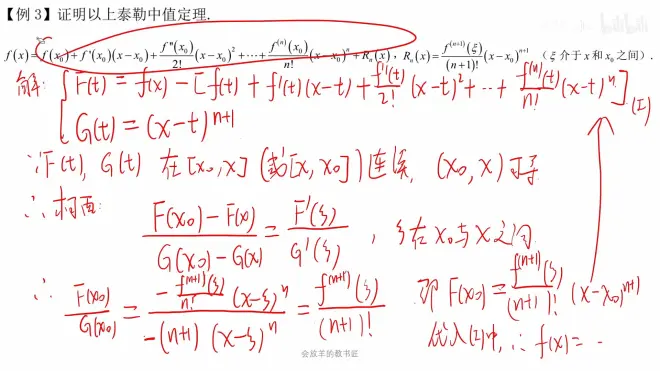 【例 3】证明以上泰勒中值定理.
f(x)=f(x₀)+f'(x₀)(x-x₀)+\frac{f''(x₀)}{2!}(x-x₀)²+⋯+\frac{f⁽ⁿ⁾(x₀)}{n!}(x-x₀)ⁿ+Rₙ(x), Rₙ(x)=\frac{f⁽ⁿ⁺¹⁾(ξ)}{(n+1)!}(x-x₀)ⁿ⁺¹ （ξ介于x和x₀之间）.
解: { F(t) = f(x) - [f(t) + f'(t)(x-t) + \frac{f''(t)}{2!}(x-t)² + ⋯ + \frac{f⁽ⁿ⁾(t)}{n!}(x-t)ⁿ] (I)
G(t) = (x-t)ⁿ⁺¹
∵ F(t), G(t) 在 [x₀, x] (或 [x, x₀]) 连续, (x₀, x) 可导
∴ 柯西: \frac{F(x₀)-F(x)}{G(x₀)-G(x)} = \frac{F'(ξ)}{G'(ξ)}, ξ在x₀与x之间
∴ \frac{F(x₀)}{G(x₀)} = \frac{-\frac{f⁽ⁿ⁺¹⁾(ξ)}{n!}(x-ξ)ⁿ}{-(n+1)(x-ξ)ⁿ} = \frac{f⁽ⁿ⁺¹⁾(ξ)}{(n+1)!} 即 F(x₀) = \frac{f⁽ⁿ⁺¹⁾(ξ)}{(n+1)!}(x-x₀)ⁿ⁺¹
代入(I)中, ∴ f(x) = ⋯
会放羊的教书匠
bilibili